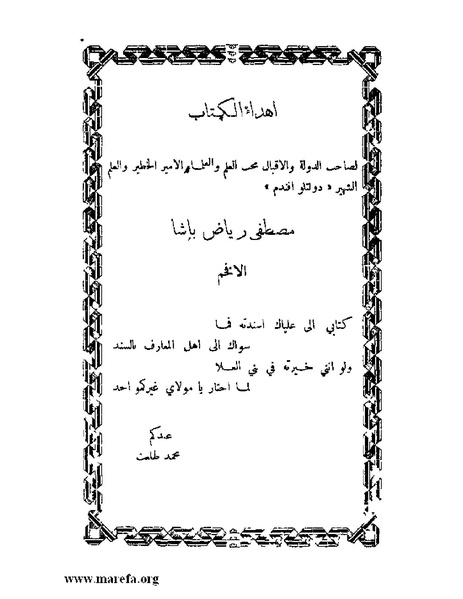 اهداء الكتاب
لصاحب الدولة والاقبال محب العلم والعلماء الامير الخطير والعلم
الشهير « دولتلو افندم »
مصطفى رياض باشا
الافخم
كتابي الى علياك اسندته فما
سواك الى أهل المعارف بالسند
ولو انني خيرته في بني العلا
لما اختار يا مولاي غيركمو احد
عبدكم
محمد طلعت
www.marefa.org